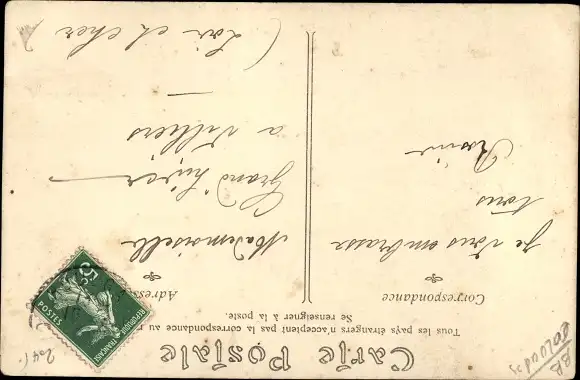 Carte Postale
Tous les pays étrangers n'acceptent pas la correspondance au
Se renseigner à la poste.
Correspondance
Je vous embrasse
tous
Rosine
Adres
Mademoiselle
Grand'
a Villiers
(Loir et cher)
5c
REPUBLIQUE FRANÇAISE
POSTES
2041
BB